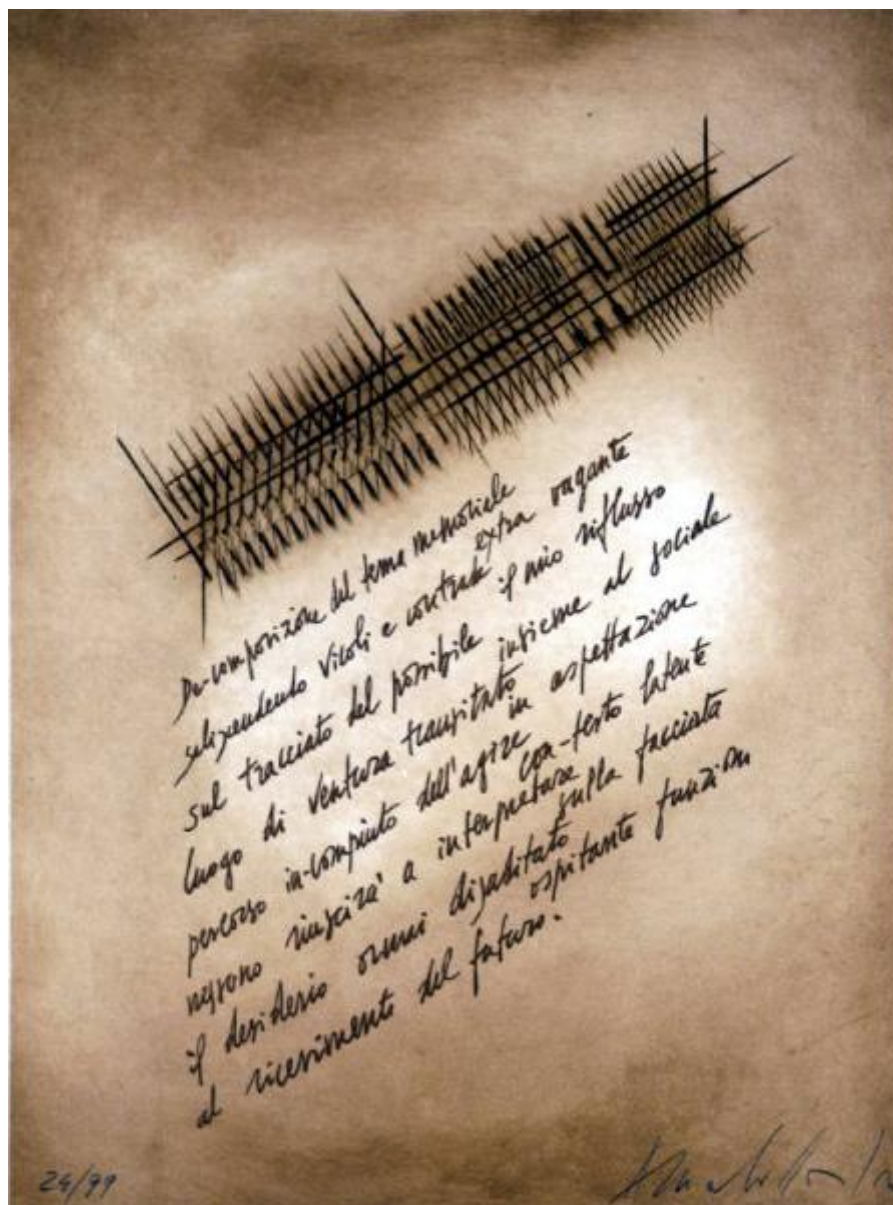 De-composizione del tema memoriale
selizendendo vicoli e contrade extra vagante
sul tracciato del possibile il mio riflusso
luogo di ventura transitato insieme al sociale
percorso in-compiuto dell'agire in aspettazione
nessuno riuscirà a interpretare con-testo latente
il desiderio ormai disabitato sulla facciata
al ricevimento del futuro. ospitante funzioni
24/99